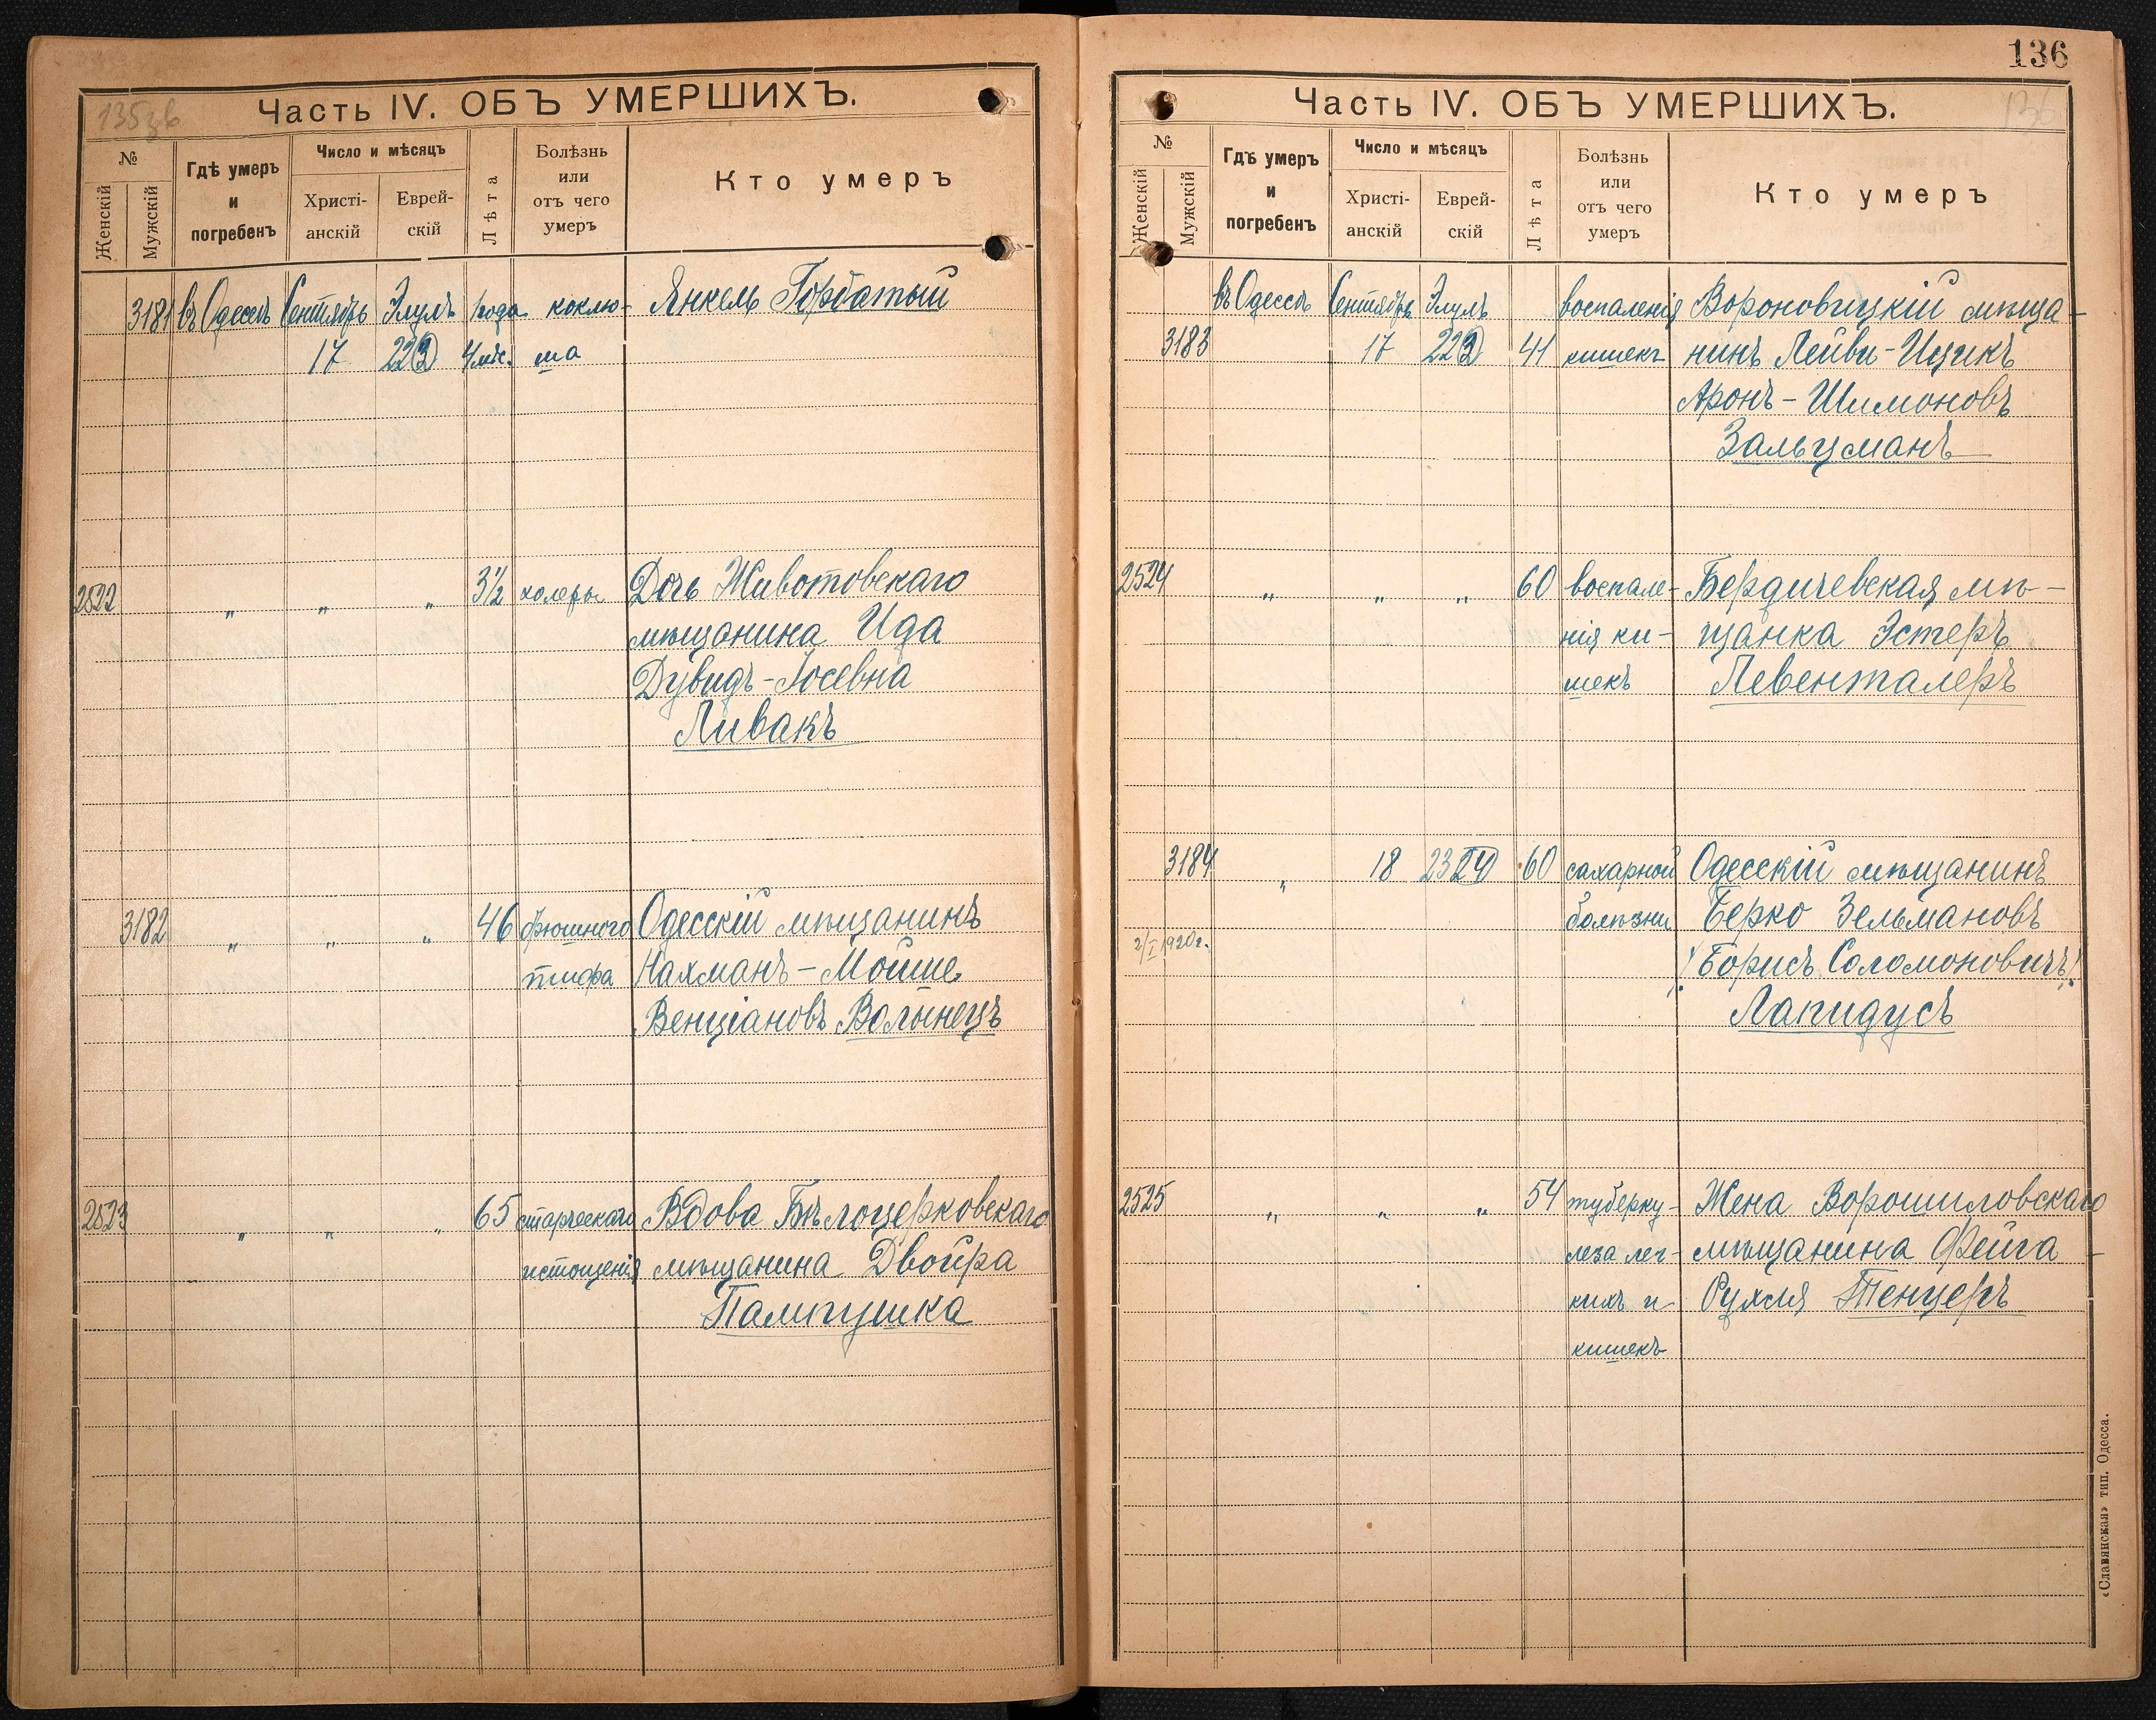 135зв
Часть IV. ОБЪ УМЕРШИХЪ.
№
Женскій
Мужскій
Гдѣ умеръ
и
погребенъ
Число и мѣсяцъ
Христі-
анскій
Еврей-
скій
Лѣта
Болѣзнь
или
отъ чего
умеръ
Кто умеръ
3181 въ Одессѣ Сентябрь Элулъ 1 года коклю- Янкель Горбатый
17 22 (3) 4 мѣс. ша
2522 " " " 3½ холеры Дочь Животовскаго
мѣщанина Ида
Дувидъ-Іосевна
Ливакъ
3182 " " " 46 брюшного Одесскій мѣщанинъ
тифа Нахманъ-Мойше
Венціановъ Волынецъ
2523 " " " 65 старческаго Вдова Бѣлоцерковскаго
истощенія мѣщанина Двойра
Пампушка
136
136
Часть IV. ОБЪ УМЕРШИХЪ.
№
Женскій
Мужскій
Гдѣ умеръ
и
погребенъ
Число и мѣсяцъ
Христі-
анскій
Еврей-
скій
Лѣта
Болѣзнь
или
отъ чего
умеръ
Кто умеръ
въ Одессѣ Сентябрь Элулъ воспаленія Вороновицкій мѣща-
3183 17 22 (3) 41 кишекъ нинъ Лейви-Ицикъ
Аронъ-Шимоновъ
Зальцманъ
2524 " " " 60 воспале- Бердичевская мѣ-
нія ки- щанка Эстеръ
шекъ Левенталеръ
3184 " 18 23 24 60 сахарной Одесскій мѣщанинъ
болѣзни Берко Зельмановъ
2/I 1920 г. /Борисъ Соломоновичъ/
Лапидусъ
2525 " " " 54 туберку- Жена Ворошиловскаго
леза лег- мѣщанина Фейга-
кихъ и Рухля Тенцеръ
кишекъ
«Славянская» тип. Одесса.